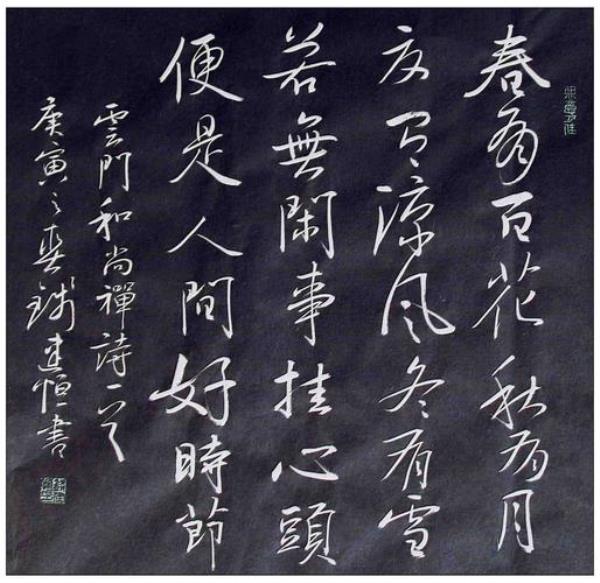 春有百花秋有月
夏有涼風冬有雪
若無閑事挂心頭
便是人間好時節
雲門和尚禪詩一首
庚寅之春錢建恒書